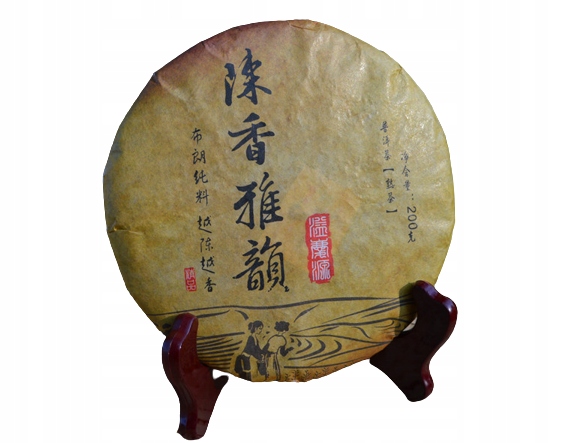 普洱茶【熟茶】
净含量：200克
陈香雅韻
布朗纯料 越陈越香